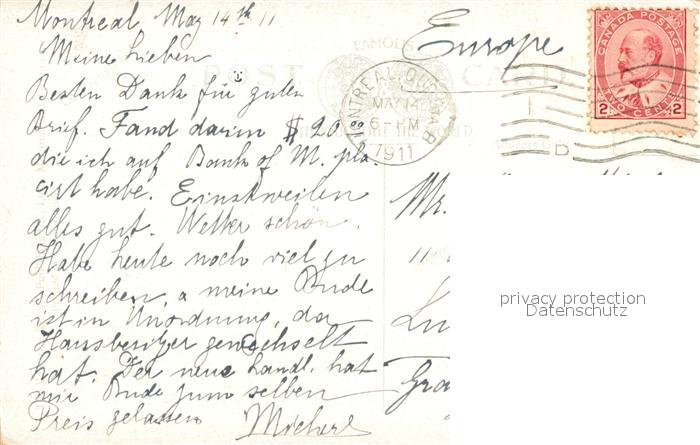 Montreal May 14th 11
Meine Lieben
Besten Dank für guten
Brief. Fand darin $ 20.00
die ich auf Bank of M. pla-
cirt habe. Einstweilen
alles gut. Wetter schön.
Habe heute noch viel zu
schreiben, & meine Bude
ist in Unordnung, da
Hausbesitzer gewechselt
hat. Der neue Landl. hat
mir Bude zum selben
Preis gelassen
Michael
FAMOUS
POST CARD
Europe
MONTREAL, QUE.
MAY 14
6-PM
1911
B
CANADA POSTAGE
2 TWO CENTS 2
Mr.
Lu
Gra
privacy protection
Datenschutz